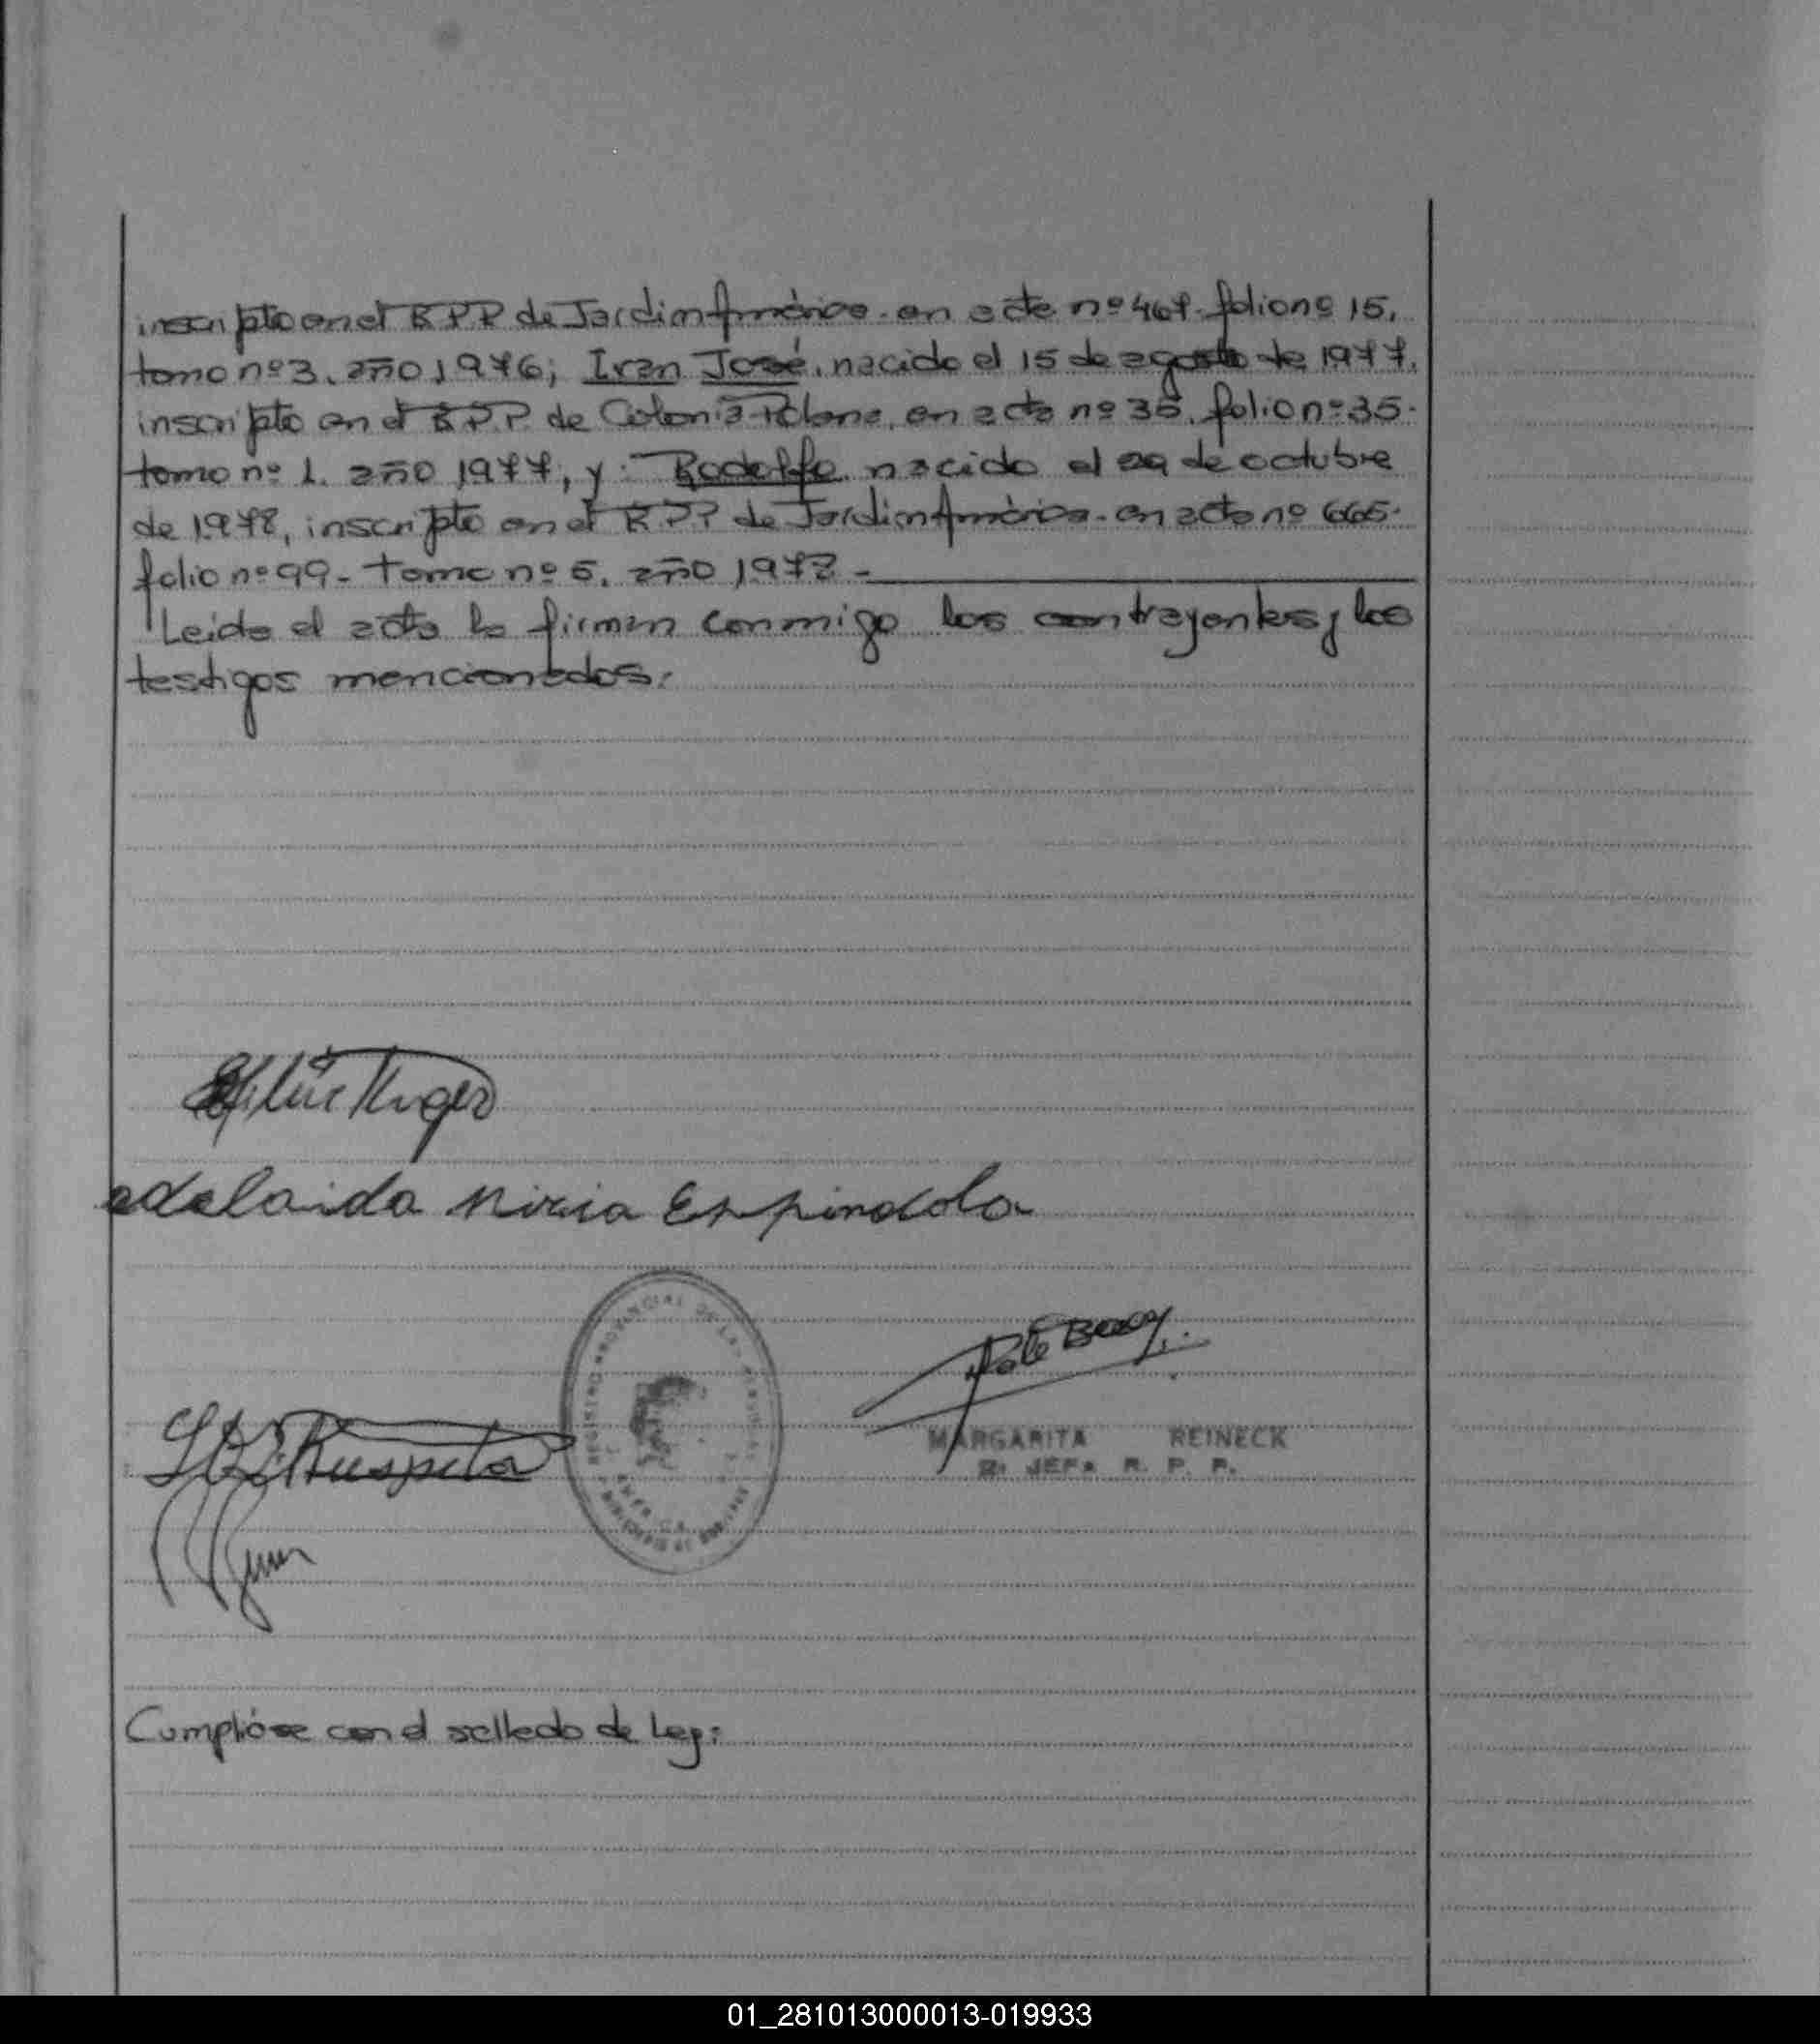 inscripto en el R.P.P. de Jardin América. en acta nº 467. folio nº 15,
tomo nº 3. año 1976; Ivan José, nacido el 15 de agosto de 1977,
inscripto en el R.P.P. de Colonia Polana, en acta nº 35, folio nº 35.
tomo nº 1. año 1977, y: Rodolfo nacido el 29 de octubre
de 1978, inscripto en el R.P.P de Jardin América. en acta nº 665.
folio nº 99 - tomo nº 5. año 1978 -
Leida el acta la firman conmigo los contrayentes y los
testigos mencionados:
adelaida Miria Espindola
MARGARITA REINECK
JEFA R. P. P.
Cumplióse con el sellado de Ley:
01_281013000013-019933